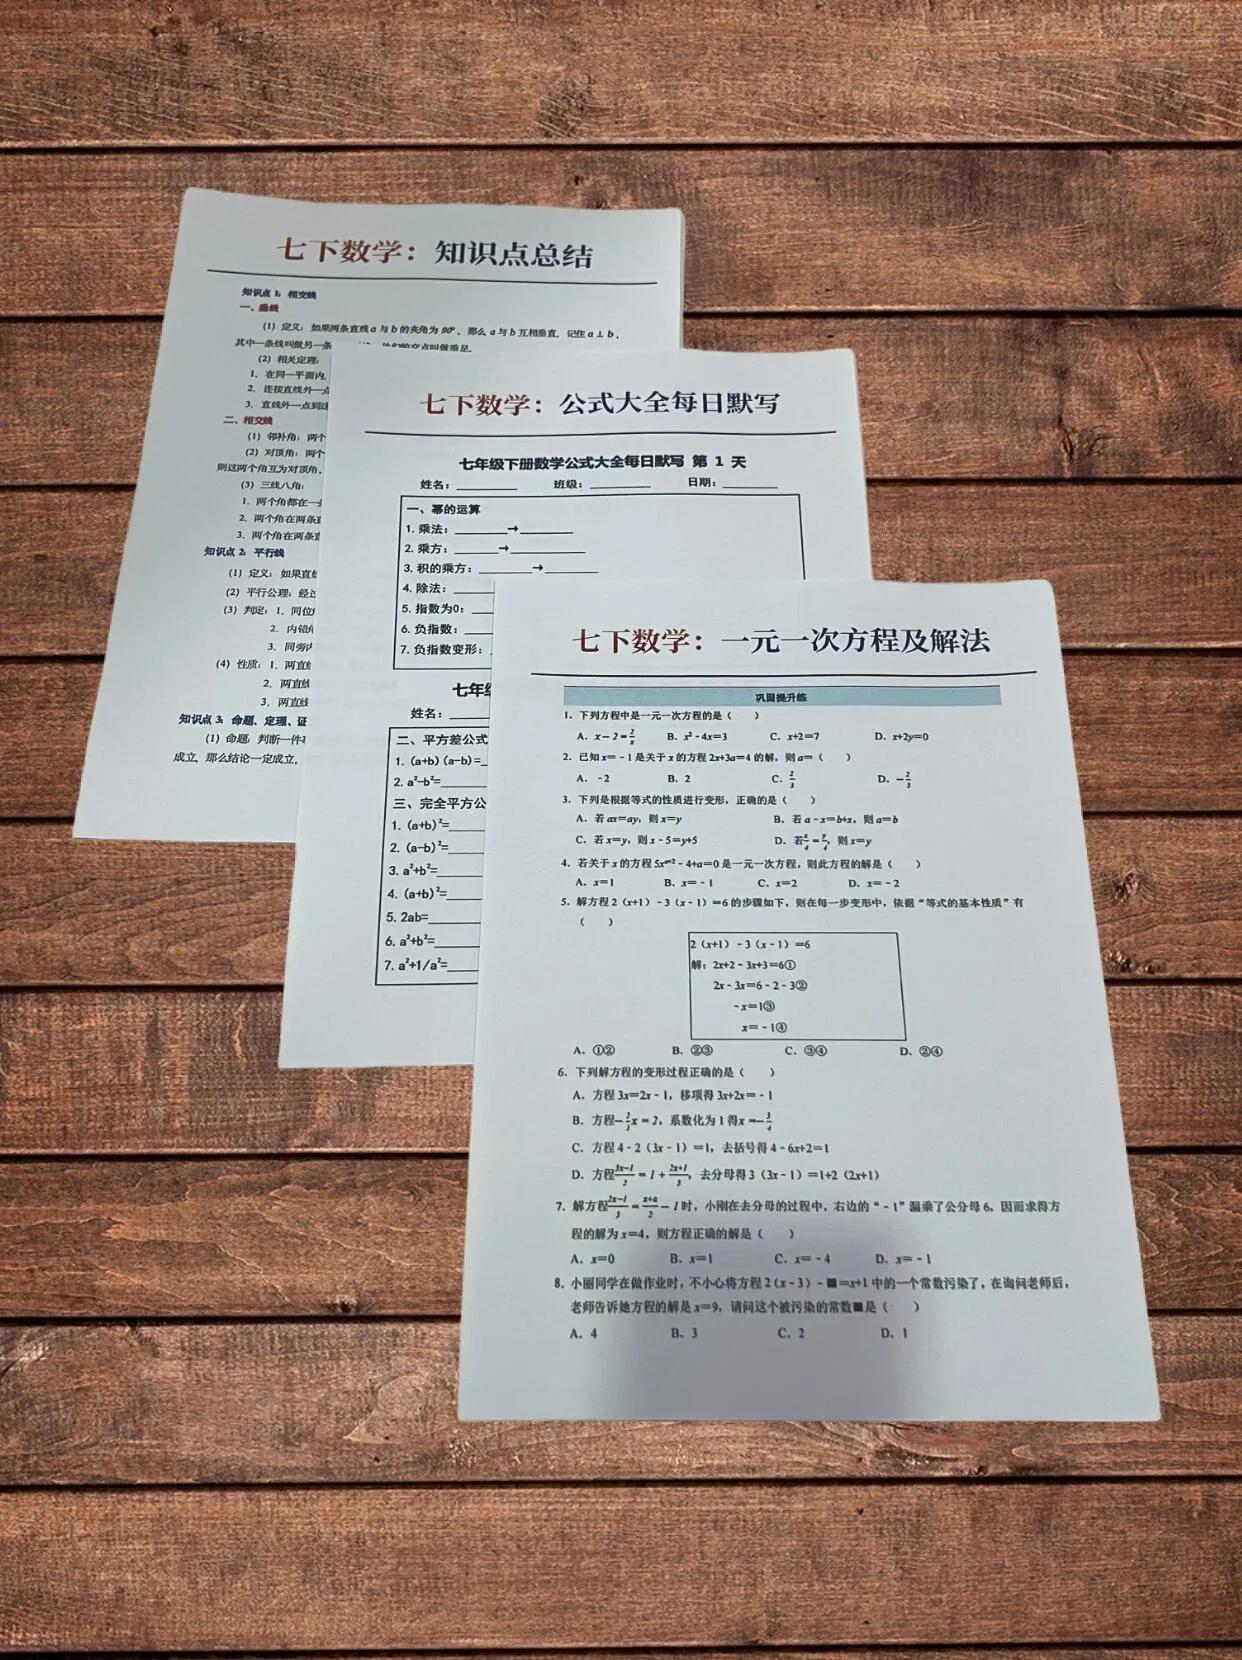 七下数学：知识点总结
知识点 1：相交线
一、垂线
（1）定义：如果两条直线 a 与 b 的夹角为 90°，那么 a 与 b 互相垂直，记住 a⊥b，
其中一条线叫做另一条
他们的交点叫做垂足。
（2）相关定理：
1．在同一平面内，
2．连接直线外一点
3．直线外一点到这
二、相交线
（1）邻补角：两个
（2）对顶角：两个
则这两个角互为对顶角，
（3）三线八角：
1．两个角都在一
2．两个角在两条直
3．两个角在两条直
知识点 2：平行线
（1）定义：如果直线
（2）平行公理：经过
（3）判定：1．同位
2．内错
3．同旁内
（4）性质：1．两直线
2．两直线
3．两直线
知识点 3：命题、定理、证
（1）命题：判断一件
成立，那么结论一定成立，
七下数学：公式大全每日默写
七年级下册数学公式大全每日默写 第 1 天
姓名：________ 班级：________ 日期：________
一、幂的运算
1. 乘法：_______→_______
2. 乘方：______→__________
3. 积的乘方：_______→_______
4. 除法：
5. 指数为0：
6. 负指数：
7. 负指数变形：
七年级
姓名：
二、平方差公式
1. (a+b)(a-b)=
2. a²-b²=
三、完全平方公
1. (a+b)²=
2. (a-b)²=
3. a²+b²=
4. (a+b)²=
5. 2ab=
6. a²+b²=
7. a²+1/a²=
七下数学：一元一次方程及解法
巩固提升练
1．下列方程中是一元一次方程的是（　　）
A．x﹣2=2/x　B．x²﹣4x=3　C．x+2=7　D．x+2y=0
2．已知 x=﹣1 是关于 x 的方程 2x+3a=4 的解，则 a=（　　）
A．﹣2　B．2　C．2/3　D．﹣2/3
3．下列是根据等式的性质进行变形，正确的是（　　）
A．若 ax=ay，则 x=y　B．若 a﹣x=b+x，则 a=b
C．若 x=y，则 x﹣5=y+5　D．若x/4=y/4，则 x=y
4．若关于 x 的方程 5xᵃ⁺²﹣4+a=0 是一元一次方程，则此方程的解是（　　）
A．x=1　B．x=﹣1　C．x=2　D．x=﹣2
5．解方程 2（x+1）﹣3（x﹣1）=6 的步骤如下，则在每一步变形中，依据“等式的基本性质”有
（　　）
2（x+1）﹣3（x﹣1）=6
解：2x+2﹣3x+3=6①
2x﹣3x=6﹣2﹣3②
﹣x=1③
x=﹣1④
A．①②　B．②③　C．③④　D．②④
6．下列解方程的变形过程正确的是（　　）
A．方程 3x=2x﹣1，移项得 3x+2x=﹣1
B．方程﹣2/3x=2，系数化为 1 得x=﹣3/4
C．方程 4﹣2（3x﹣1）=1，去括号得 4﹣6x+2=1
D．方程(3x﹣1)/2=1+(2x+1)/3，去分母得 3（3x﹣1）=1+2（2x+1）
7．解方程(2x﹣1)/3=(x+a)/2﹣1时，小刚在去分母的过程中，右边的“﹣1”漏乘了公分母 6，因而求得方
程的解为 x=4，则方程正确的解是（　　）
A．x=0　B．x=1　C．x=﹣4　D．x=﹣1
8．小丽同学在做作业时，不小心将方程 2（x﹣3）﹣■=x+1 中的一个常数污染了，在询问老师后，
老师告诉她方程的解是 x=9，请问这个被污染的常数■是（　　）
A．4　B．3　C．2　D．1